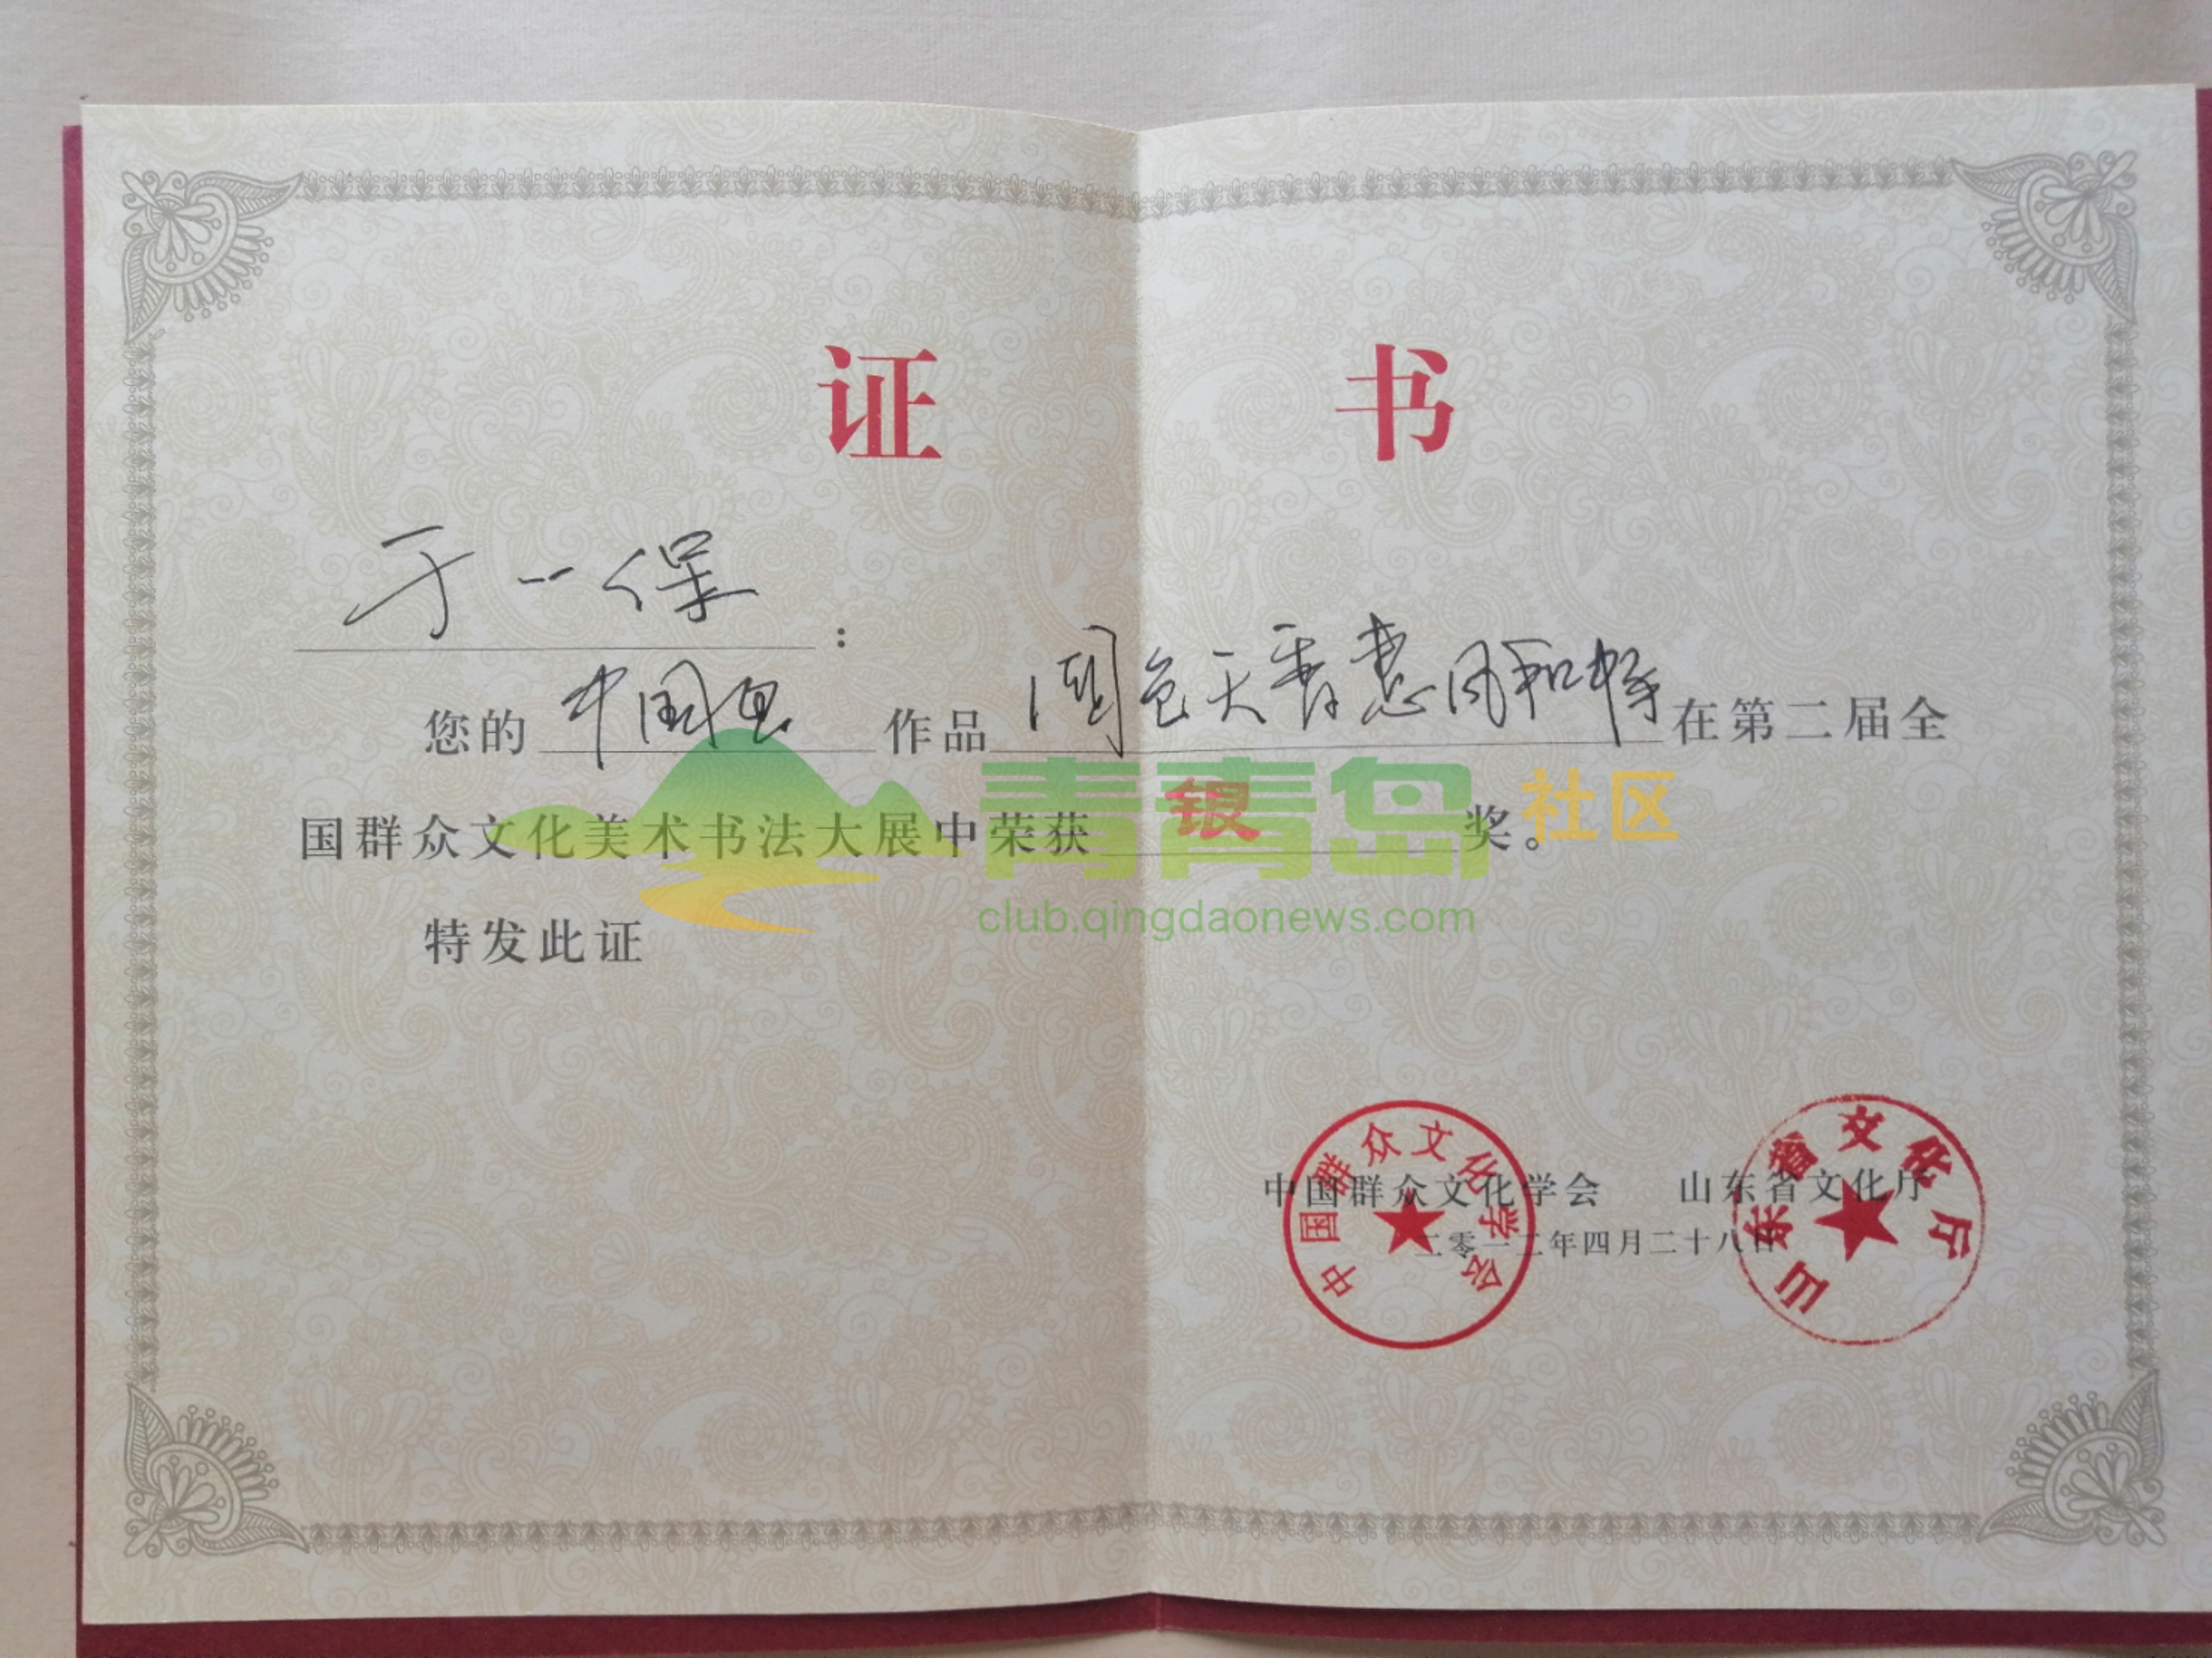 证 书
于一保：
您的 中国画 作品 国色天香惠风和畅 在第二届全
国群众文化美术书法大展中荣获 银 奖。
特发此证
青青岛 社区
club.qingdaonews.com
中国群众文化学会 山东省文化厅
二零一二年四月二十八日
中国群众文化学会
山东省文化厅